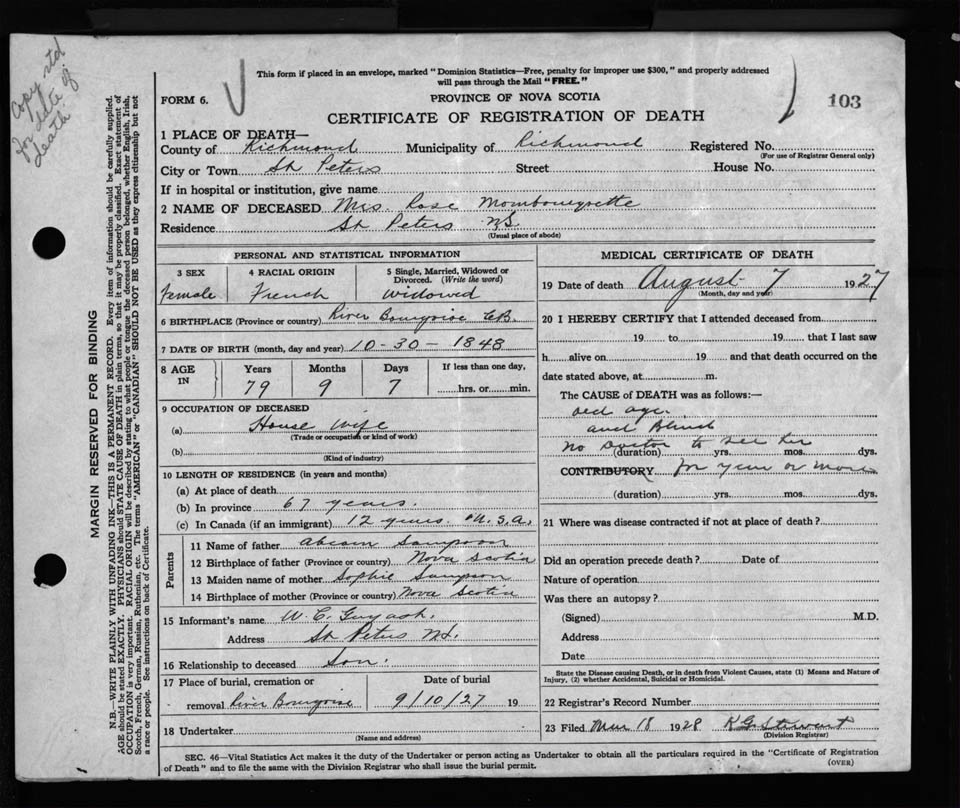 Copy std
for date of
death
This form if placed in an envelope, marked "Dominion Statistics—Free, penalty for improper use $300," and properly addressed
will pass through the Mail "FREE."
FORM 6.
PROVINCE OF NOVA SCOTIA
103
CERTIFICATE OF REGISTRATION OF DEATH
1 PLACE OF DEATH—
County of Richmond Municipality of Richmond Registered No.
(For use of Registrar General only)
City or Town St Peters Street House No.
If in hospital or institution, give name
2 NAME OF DECEASED Mrs. Rose Mombourquette
Residence St Peters NS
(Usual place of abode)
PERSONAL AND STATISTICAL INFORMATION
3 SEX 4 RACIAL ORIGIN 5 Single, Married, Widowed or
Divorced. (Write the word)
Female French widowed
6 BIRTHPLACE (Province or country) River Bourgoise CB.
7 DATE OF BIRTH (month, day and year) 10-30-1848
8 AGE IN Years Months Days If less than one day,
79 9 7 hrs. or min.
9 OCCUPATION OF DECEASED
(a) House Wife
(Trade or occupation or kind of work)
(b)
(Kind of industry)
10 LENGTH OF RESIDENCE (in years and months)
(a) At place of death
(b) In province 67 years.
(c) In Canada (if an immigrant) 12 years. U.S.A.
Parents
11 Name of father Abram Sampson
12 Birthplace of father (Province or Country) Nova Scotia
13 Maiden name of mother Sophie Sampson
14 Birthplace of mother (Province or country) Nova Scotia
15 Informant's name W. C.
Address St Peters NS.
16 Relationship to deceased Son.
17 Place of burial, cremation or Date of burial
removal River Bourgoise 9/10/27 19
18 Undertaker
(Name and address)
MEDICAL CERTIFICATE OF DEATH
19 Date of death August 7 1927
(Month, day and year)
20 I HEREBY CERTIFY that I attended deceased from
19 to 19 that I last saw
h alive on 19 and that death occurred on the
date stated above, at m.
The CAUSE of DEATH was as follows:—
old age.
and Blind
No Doctor to see her
(duration) yrs. mos. dys.
CONTRIBUTORY for year or more
(duration) yrs. mos. dys.
21 Where was disease contracted if not at place of death?
Did an operation precede death? Date of
Nature of operation
Was there an autopsy?
(Signed) M.D.
Address
Date
State the Disease causing Death, or in death from Violent Causes, state (1) Means and Nature of
Injury, (2) whether Accidental, Suicidal or Homicidal.
22 Registrar's Record Number
23 Filed Mar 18 1928 K G Stewart
(Division Registrar)
SEC. 46—Vital Statistics Act makes it the duty of the Undertaker or person acting as Undertaker to obtain all the particulars required in the "Certificate of Registration
of Death" and to file the same with the Division Registrar who shall issue the burial permit.
(OVER)
MARGIN RESERVED FOR BINDING
N.B.—WRITE PLAINLY WITH UNFADING INK—THIS IS A PERMANENT RECORD. Every item of information should be carefully supplied.
AGE should be stated EXACTLY. PHYSICIANS should STATE CAUSE OF DEATH in plain terms, so that it may be properly classified. Exact statement of
OCCUPATION is very important. RACIAL ORIGIN will be described by stating to what people or tongue the deceased person belonged, whether English, Irish,
Scotch, French, German, Russian, Ruthenian, etc. The terms "AMERICAN" or "CANADIAN" SHOULD NOT BE USED as they express citizenship but not
a race or people. See instructions on back of Certificate.